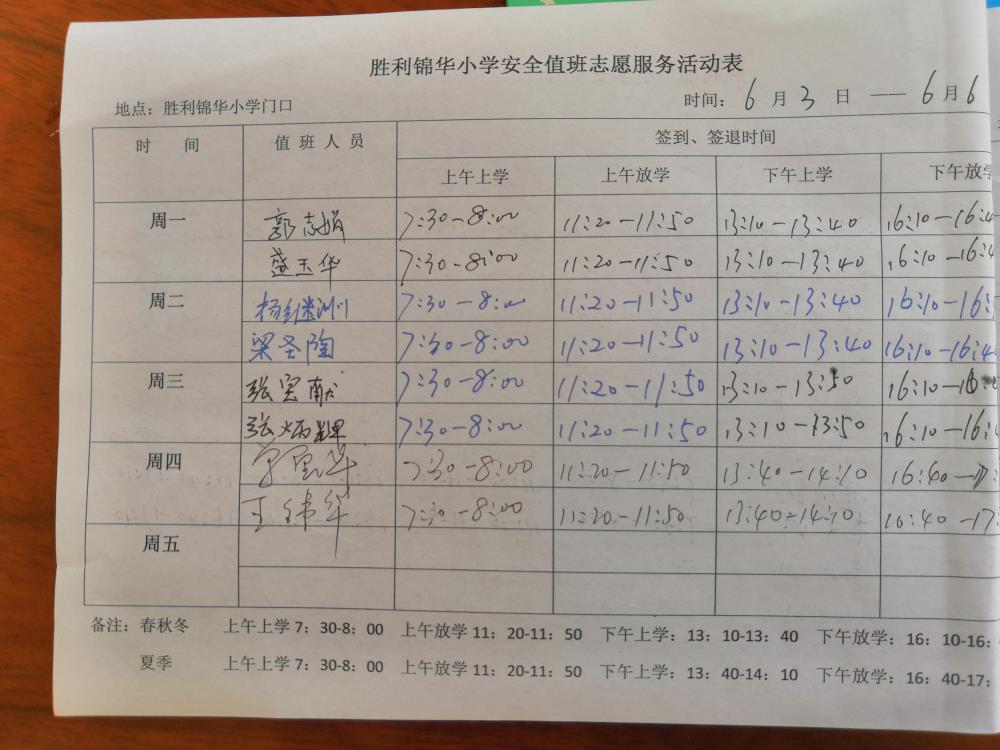 胜利锦华小学安全值班志愿服务活动表
地点：胜利锦华小学门口 时间：6月3日 —— 6月6
时 间 值班人员 签到、签退时间
上午上学 上午放学 下午上学 下午放学
周一 郭志娟 7:30-8:00 11:20-11:50 13:10-13:40 16:10-16:4
盛玉华 7:30-8:00 11:20-11:50 13:10-13:40 16:10-16:4
周二 杨继洲 7:30-8:00 11:20-11:50 13:10-13:40 16:10-16:
梁圣陶 7:30-8:00 11:20-11:50 13:10-13:40 16:10-16:4
周三 张宝献 7:30-8:00 11:20-11:50 13:10-13:50 16:10-16:
张炳 7:30-8:00 11:20-11:50 13:10-13:50 16:10-16:
周四 7:30-8:00 11:20-11:50 13:40-14:10 16:40-
王伟华 7:30-8:00 11:20-11:50 13:40-14:10 16:40-17
周五
备注：春秋冬 上午上学 7：30-8：00 上午放学 11：20-11：50 下午上学：13：10-13：40 下午放学：16：10-16：
夏季 上午上学 7：30-8：00 上午放学 11：20-11：50 下午上学：13：40-14：10 下午放学：16：40-17：